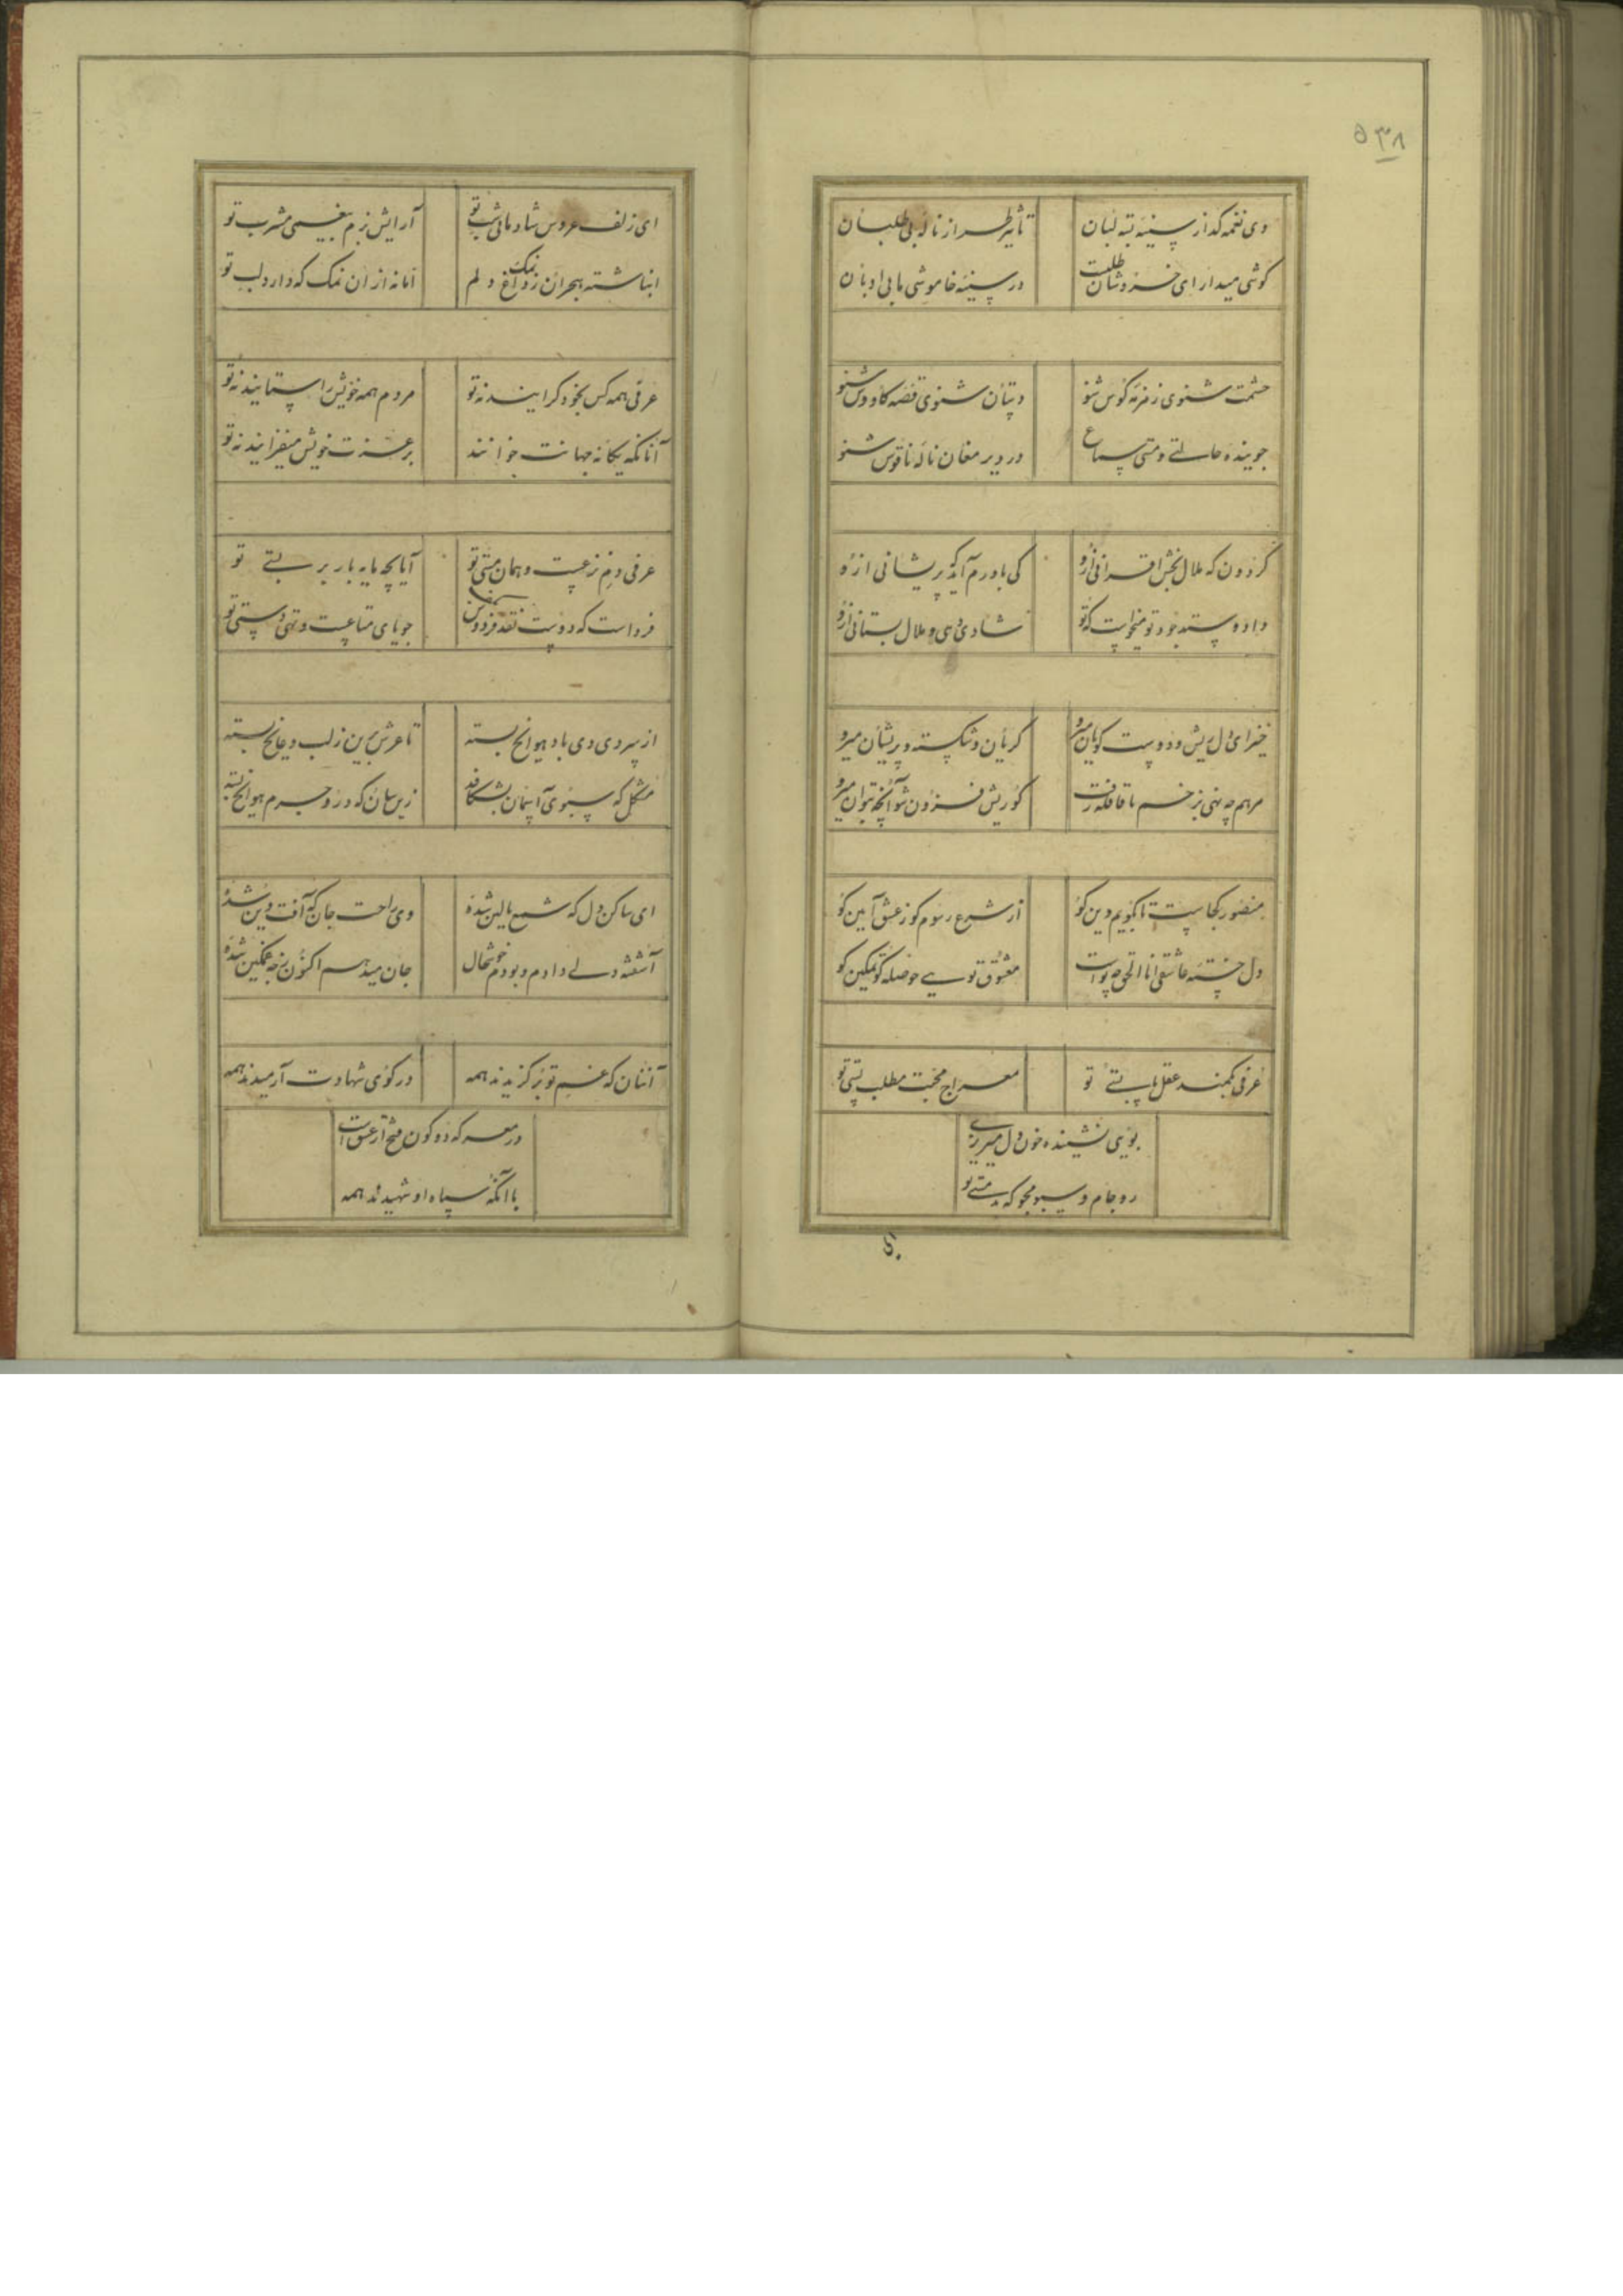 ۵۳۸
وی نغمه گداز سینهٔ تشنه لبان
تأثیر طراز نالهٔ بی طلبان
گوشی میدار ای خروشان طلبت
در سینهٔ خاموشی ما بی ادبان
حشمت شنوی زمزمهٔ کوس شنو
دستان شنوی قصهٔ کاووس شنو
جوینده حالتی و مستی سماع
در دیر مغان نالهٔ ناقوس شنو
گردون که ملال بخش افزانی ازو
کی باورم آید که پریشانی ازو
داد و ستد جود تو میخواست که تو
شادی دهی و ملال بستانی ازو
خیز ای دل ریش و در دوست گویان میرو
گریان و شکسته و پریشان میرو
مرهم چه نهی بزخم تا قافله رفت
گو ریش فزون شو آنچه بتوان میرو
منصور کجاست تا بگویم دین کو
از شرع رسوم کو ز عشق آیین کو
دل خستهٔ عاشقی انا الحق چه پواست
معشوق توسی حوصله کو تمکین کو
عرفی بکمند عقل پابستهٔ تو
معراج محبت مطلب پستی تو
بویی نشنیده خون دل میریزی
رو جام و سبو مجو که بدمستی تو
ای زلف عروس شادمانی شب تو
آرایش بزم بیغمی مشرب تو
انباشته هجران نمک زداغ دلم
اما نه از آن نمک که دارد لب تو
عرفی همه کس بخود گرایند نه تو
مردم همه خویش را ستایند نه تو
آنانکه یگانه جهانت خوانند
بر عزت خویش میفزایند نه تو
عرفی دم نزعست و همان مستی تو
آیا بچه مایه بار بر بستی تو
فرداست که دوست نقد فردوس بکف
جویای متاعست و تهی دستی تو
از سردی دی باد هوا یخ بسته
تا عرش برین ز لب دعا یخ بسته
مشکل که سبوی آسمان بشکافد
زین سان که درو جرم هوا یخ بسته
ای ساکن دل که شمع بالین شدهٔ
وی راحت جان که آفت دین شدهٔ
آشفته دلی دادم و بودم خوشحال
جان میدهم اکنون ز چه غمگین شدهٔ
آنان که غم تو برگزیدند همه
در کوی شهادت آرمیدند همه
در معرکه دو کون فتح از عشق است
با آنکه سپاه او شهیدند همه